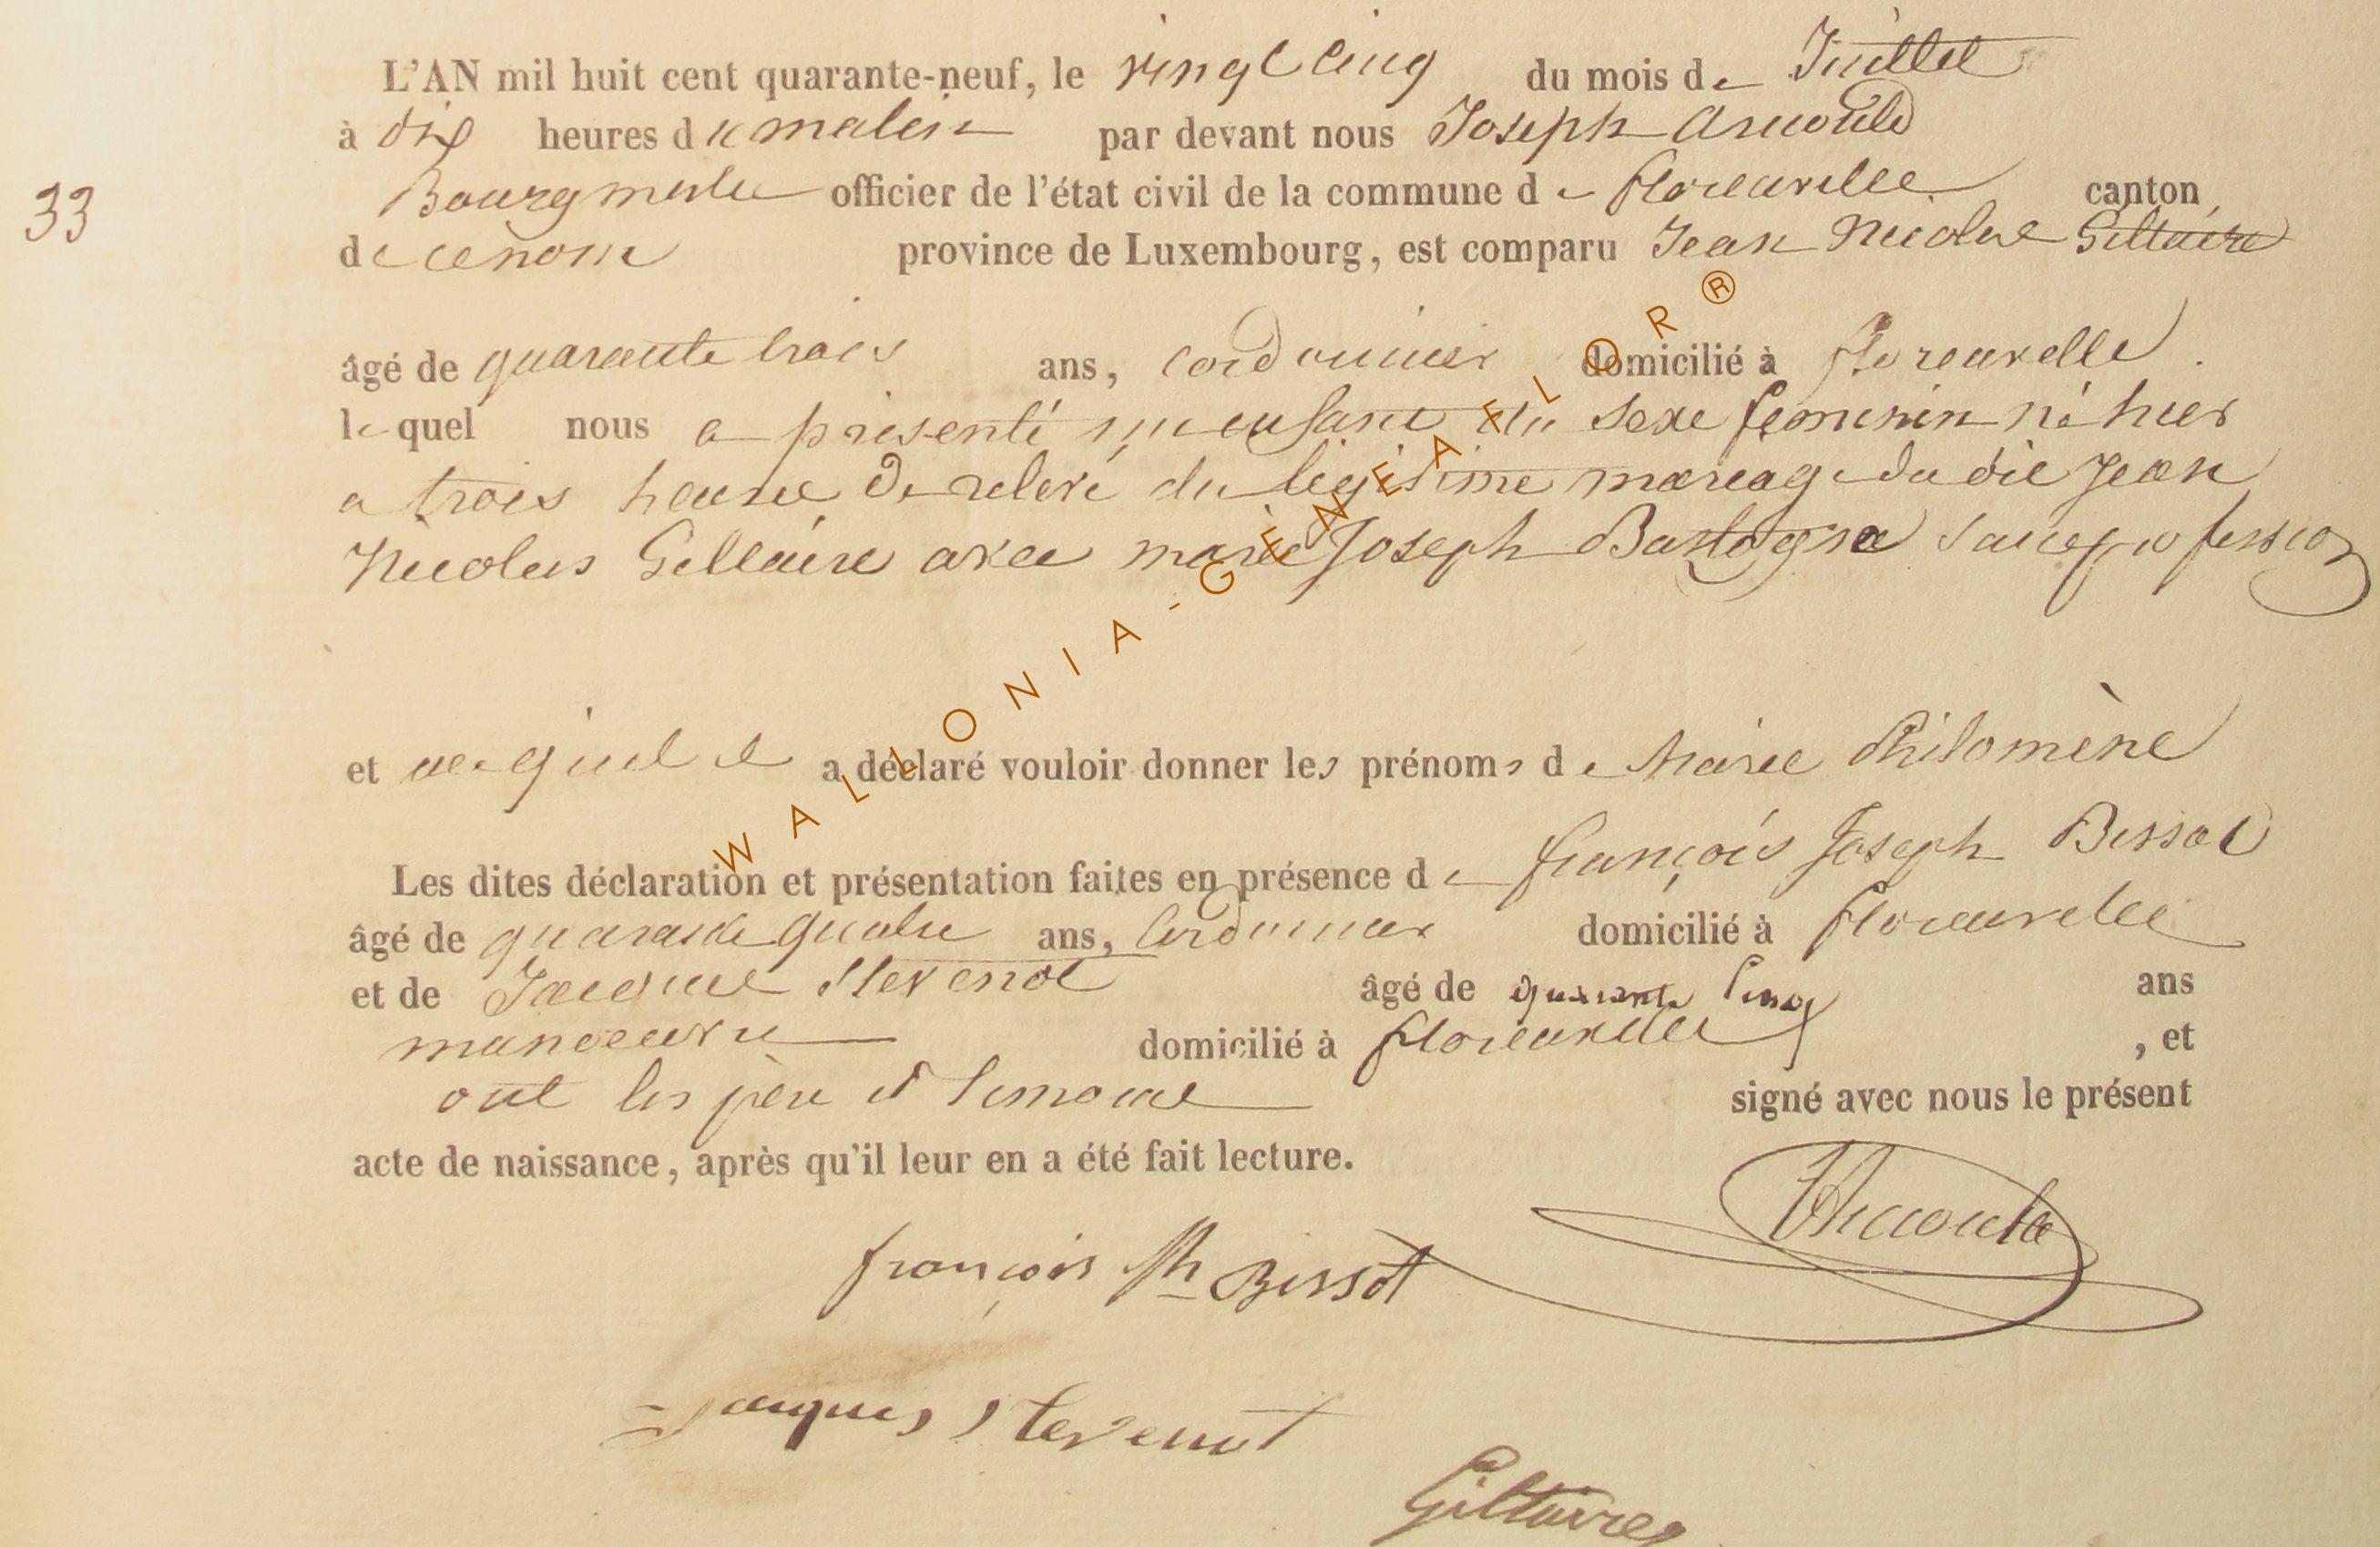 L'AN mil huit cent quarante-neuf, le vingt cinq du mois de Juillet
à dix heures du matin par devant nous Joseph Arnould
33
Bourgmestre officier de l'état civil de la commune de florenville canton
de province de Luxembourg, est comparu Jean Nicolas Giltaire
âgé de quarante trois ans, cordonnier domicilié à florenville.
lequel nous a présenté un enfant du sexe feminin né hier
a trois heure de relevé du legitime mariage du dit Jean
Nicolas Giltaire avec marie Joseph Bastogne sans profession
et auquel il a déclaré vouloir donner les prénoms de Marie Philomène
Les dites déclaration et présentation faites en présence de françois Joseph Bissot
âgé de quarante quatre ans, cordonnier domicilié à florenville
et de Jacque Stevenot âgé de quarante cinq ans
manoeuvre domicilié à florenville , et
ont les père et temoins signé avec nous le présent
acte de naissance, après qu'il leur en a été fait lecture.
Arnould
françois Jh Bissot
jacques stevenot
Giltaire
WALLONIA-GENEAFLOR®